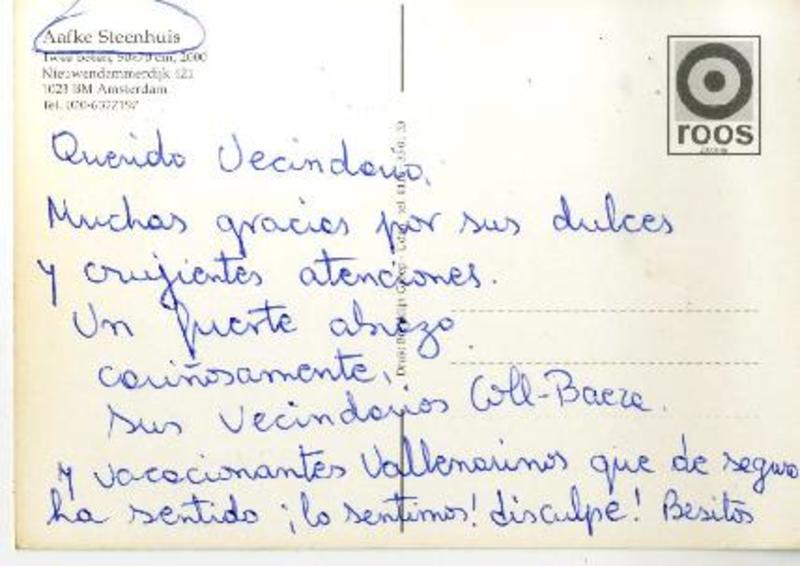 Aafke Steenhuis
Twee boten, 50x70 cm, 2000
Nieuwendammerdijk 421
1023 BM Amsterdam
tel. 020-6372197
roos
Querido Vecindario,
Muchas gracias por sus dulces
y crujientes atenciones.
Un fuerte abrazo
cariñosamente,
sus vecindarios Coll-Baeza.
y vacacionantes Vallenarinos que de seguro
ha sentido ¡lo sentimos! disculpe! Besitos